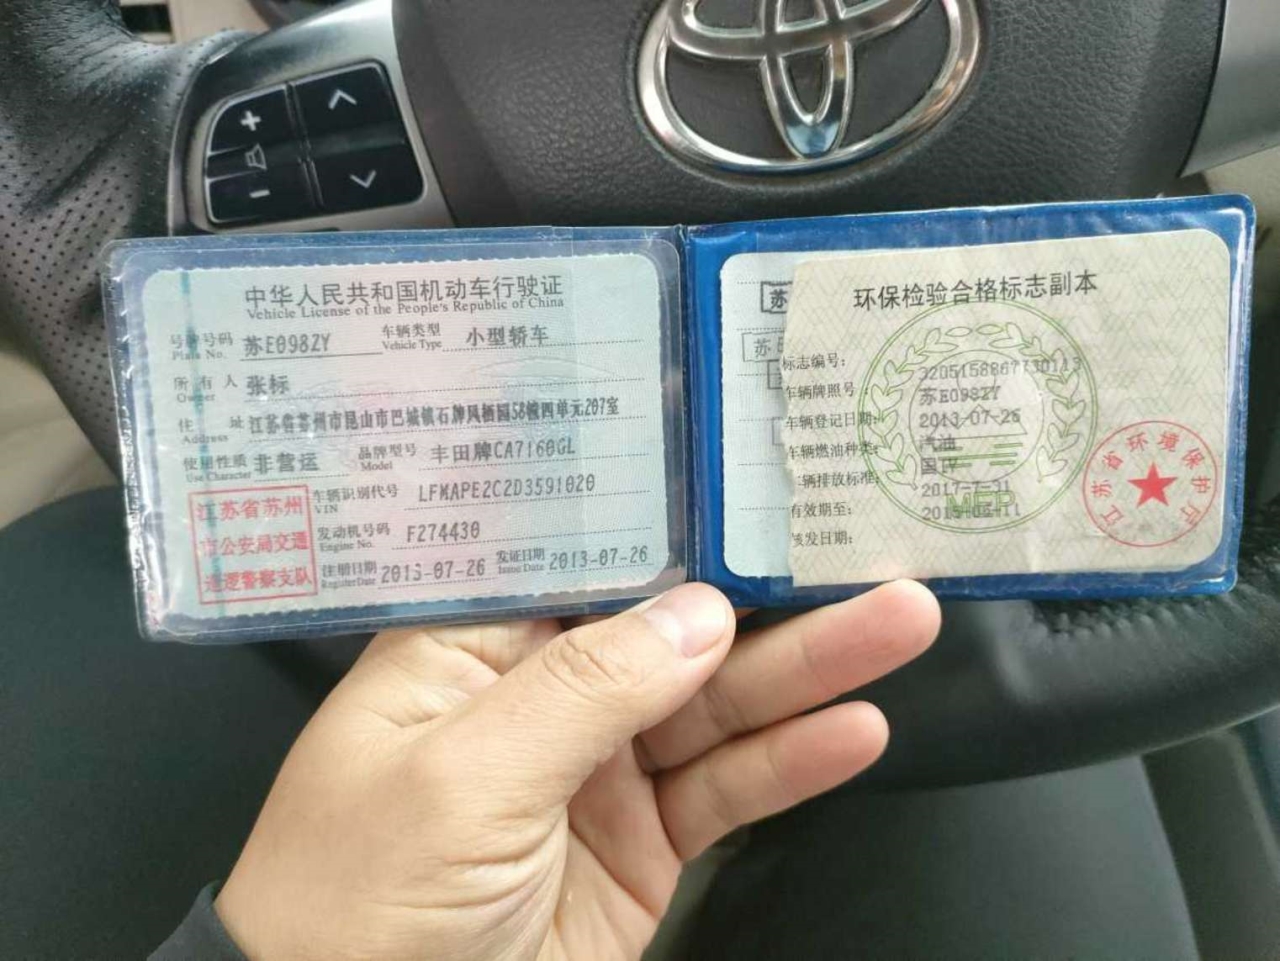 中华人民共和国机动车行驶证
Vehicle License of the People's Republic of China
号牌号码 苏E098ZY 车辆类型 小型轿车
Plate No. Vehicle Type
所有人 张标
Owner
住址 江苏省苏州市昆山市巴城镇石牌凤栖园58幢四单元207室
Address
使用性质 非营运 品牌型号 丰田牌CA7160GL
Use Character Model
车辆识别代号 LFMAPE2C2D3591020
VIN
发动机号码 F274430
Engine No.
注册日期 2013-07-26 发证日期 2013-07-26
Register Date Issue Date
江苏省苏州
市公安局交通
巡逻警察支队
苏
苏E
环保检验合格标志副本
标志编号: 3205158867730113
车辆牌照号: 苏E098ZY
车辆登记日期: 2013-07-26
车辆燃油种类: 汽油
车辆排放标准: 国IV
有效期至: 2017-7-31
核发日期:
MEP
江苏省环境保护厅